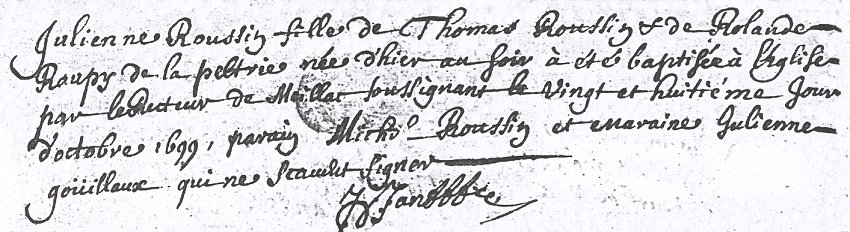 Julienne Roussin fille de Thomas Roussin & de Rolande
Raupy de la peltrie née d'hier au soir à été baptisée à l'église
par le Recteur de Meillac soussignant le vingt et huitiéme jour
d'octobre 1699, parain Michel Roussin et maraine Julienne
goüillaux qui ne scavent signer